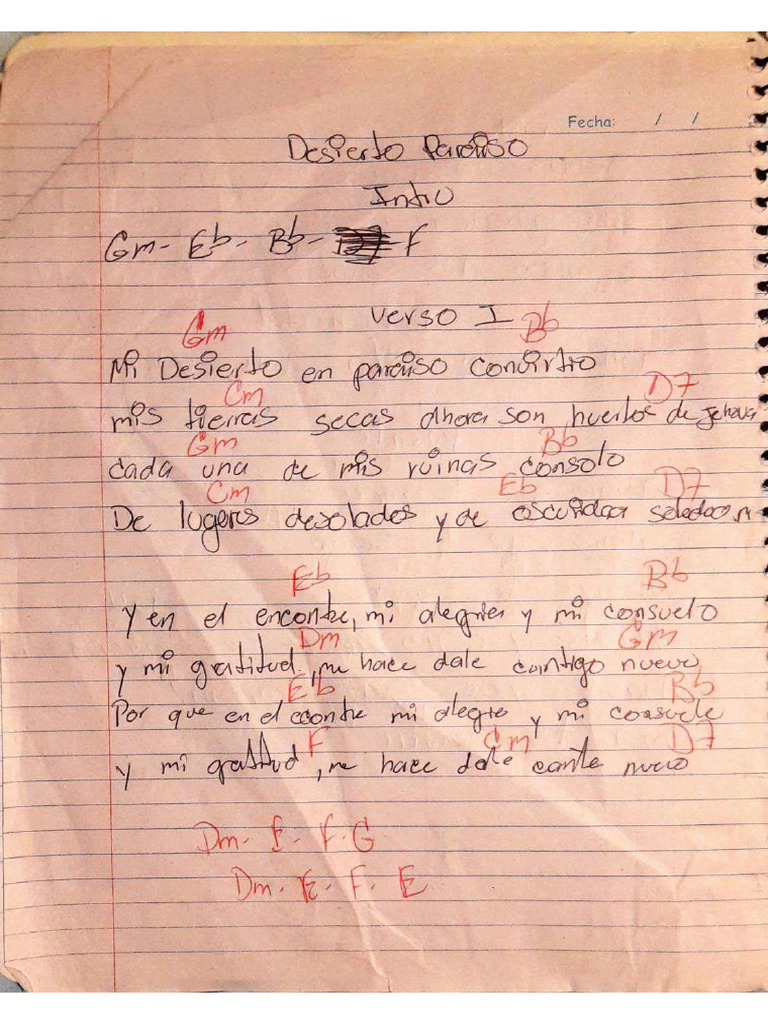 Fecha: / /
Desierto Paraiso
Intro
Gm- Eb- Bb- F
Verso I
Gm Bb
Mi Desierto en paraiso convirtio
Cm D7
mis tierras secas ahora son huertos de Jehova
Gm Bb
cada una de mis ruinas consolo
Cm Eb D7
De lugares desolados y de oscuridad
Eb Bb
Y en el encontre, mi alegria y mi consuelo
Dm Gm
y mi gratitud, me hace dale cantigo nuevo
Eb Bb
Por que en el econtre mi alegre y mi consuele
F Cm D7
y mi gratitud, me hace dale cante nuevo
Dm- E- F- G
Dm- E- F- E